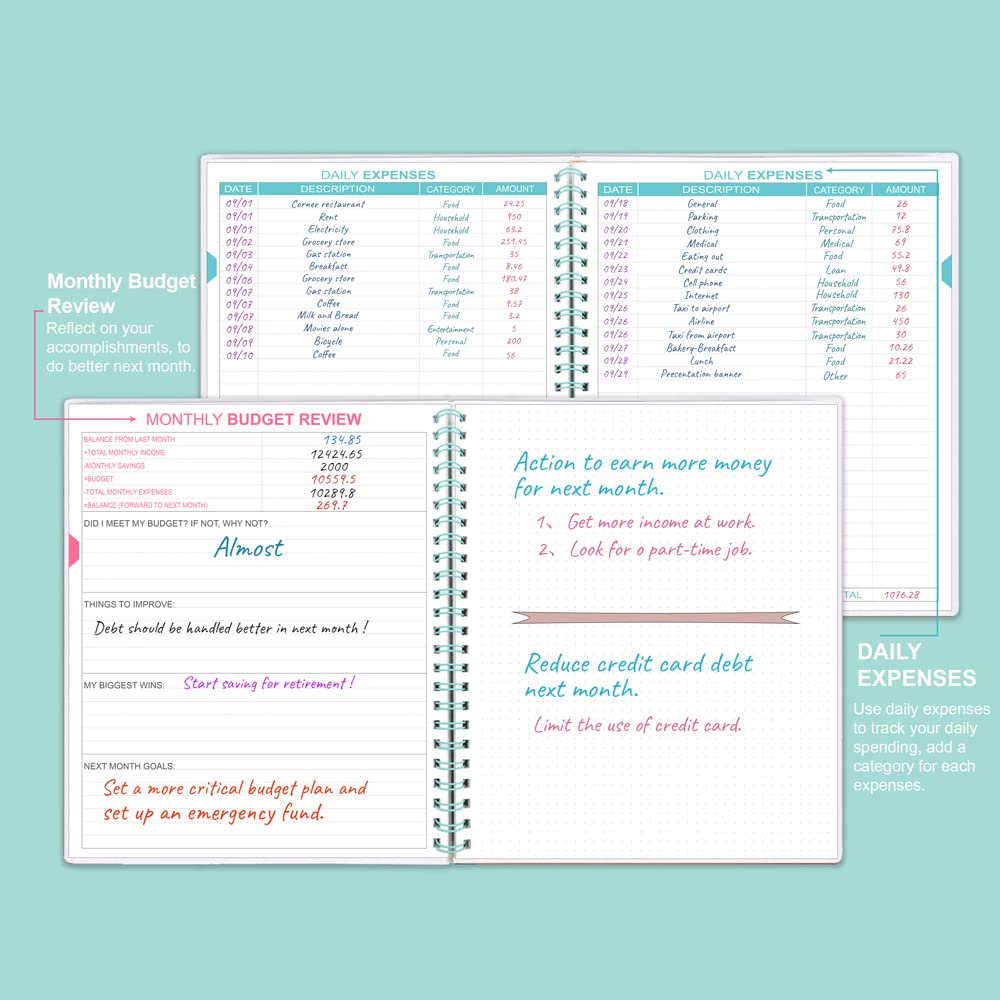 DAILY EXPENSES
DATE DESCRIPTION CATEGORY AMOUNT
09/01 Corner restaurant Food 24.25
09/01 Rent Household 950
09/01 Electricity Household 63.2
09/02 Grocery store Food 251.45
09/03 Gas station Transportation 35
09/04 Breakfast Food 8.46
09/06 Grocery store Food 180.47
09/07 Gas station Transportation 38
09/07 Coffee Food 9.57
09/07 Milk and Bread Food 3.2
09/08 Movies alone Entertainment 5
09/09 Bicycle Personal 200
09/10 Coffee Food 56
DAILY EXPENSES
DATE DESCRIPTION CATEGORY AMOUNT
09/18 General Food 26
09/19 Parking Transportation 12
09/20 Clothing Personal 75.8
09/21 Medical Medical 69
09/22 Eating out Food 55.2
09/23 Credit cards Loan 49.8
09/24 Cell phone Household 56
09/25 Internet Household 130
09/26 Taxi to airport Transportation 26
09/26 Airline Transportation 450
09/26 Taxi from airport Transportation 30
09/27 Bakery-Breakfast Food 10.26
09/28 Lunch Food 21.22
09/29 Presentation banner Other 65
TAL 1076.28
Monthly Budget
Review
Reflect on your
accomplishments, to
do better next month.
MONTHLY BUDGET REVIEW
BALANCE FROM LAST MONTH 134.85
+TOTAL MONTHLY INCOME 12424.65
-MONTHLY SAVINGS 2000
=BUDGET 10559.5
-TOTAL MONTHLY EXPENSES 10289.8
=BALANCE (FORWARD TO NEXT MONTH) 269.7
DID I MEET MY BUDGET? IF NOT, WHY NOT?
Almost
THINGS TO IMPROVE:
Debt should be handled better in next month !
MY BIGGEST WINS: Start saving for retirement !
NEXT MONTH GOALS:
Set a more critical budget plan and
set up an emergency fund.
Action to earn more money
for next month.
1、 Get more income at work.
2、 Look for a part-time job.
Reduce credit card debt
next month.
Limit the use of credit card.
DAILY
EXPENSES
Use daily expenses
to track your daily
spending, add a
category for each
expenses.